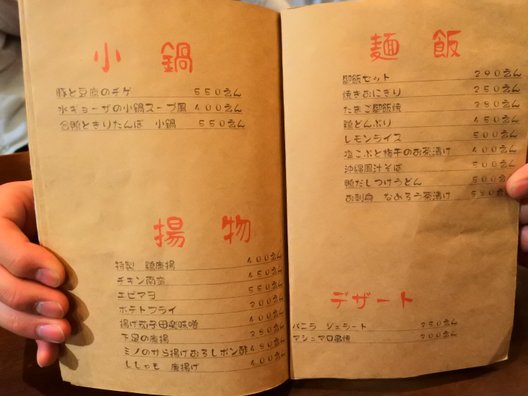 小鍋
豚と豆腐のチゲ 550えん
水ギョーザの小鍋スープ風 400えん
合鴨ときりたんぽ 小鍋 550えん
揚物
特製 鶏唐揚 400えん
チキン南蛮 450えん
エビマヨ 550えん
ポテトフライ 200えん
揚げ茄子田楽味噌 400えん
下足の唐揚 350えん
ミノのから揚げおろしポン酢 450えん
ししゃも 唐揚げ 400えん
麺飯
御飯セット 200えん
焼きおにぎり 250えん
たまご御飯焼 350えん
鶏どんぶり 450えん
レモンライス 500えん
塩こぶと梅干のお茶漬け 400えん
沖縄風汁そば 500えん
鴨だしつけうどん 500えん
お刺身 なめろう茶漬け
デザート
バニラ ジェラート 250えん
マシュマロ串焼 200えん